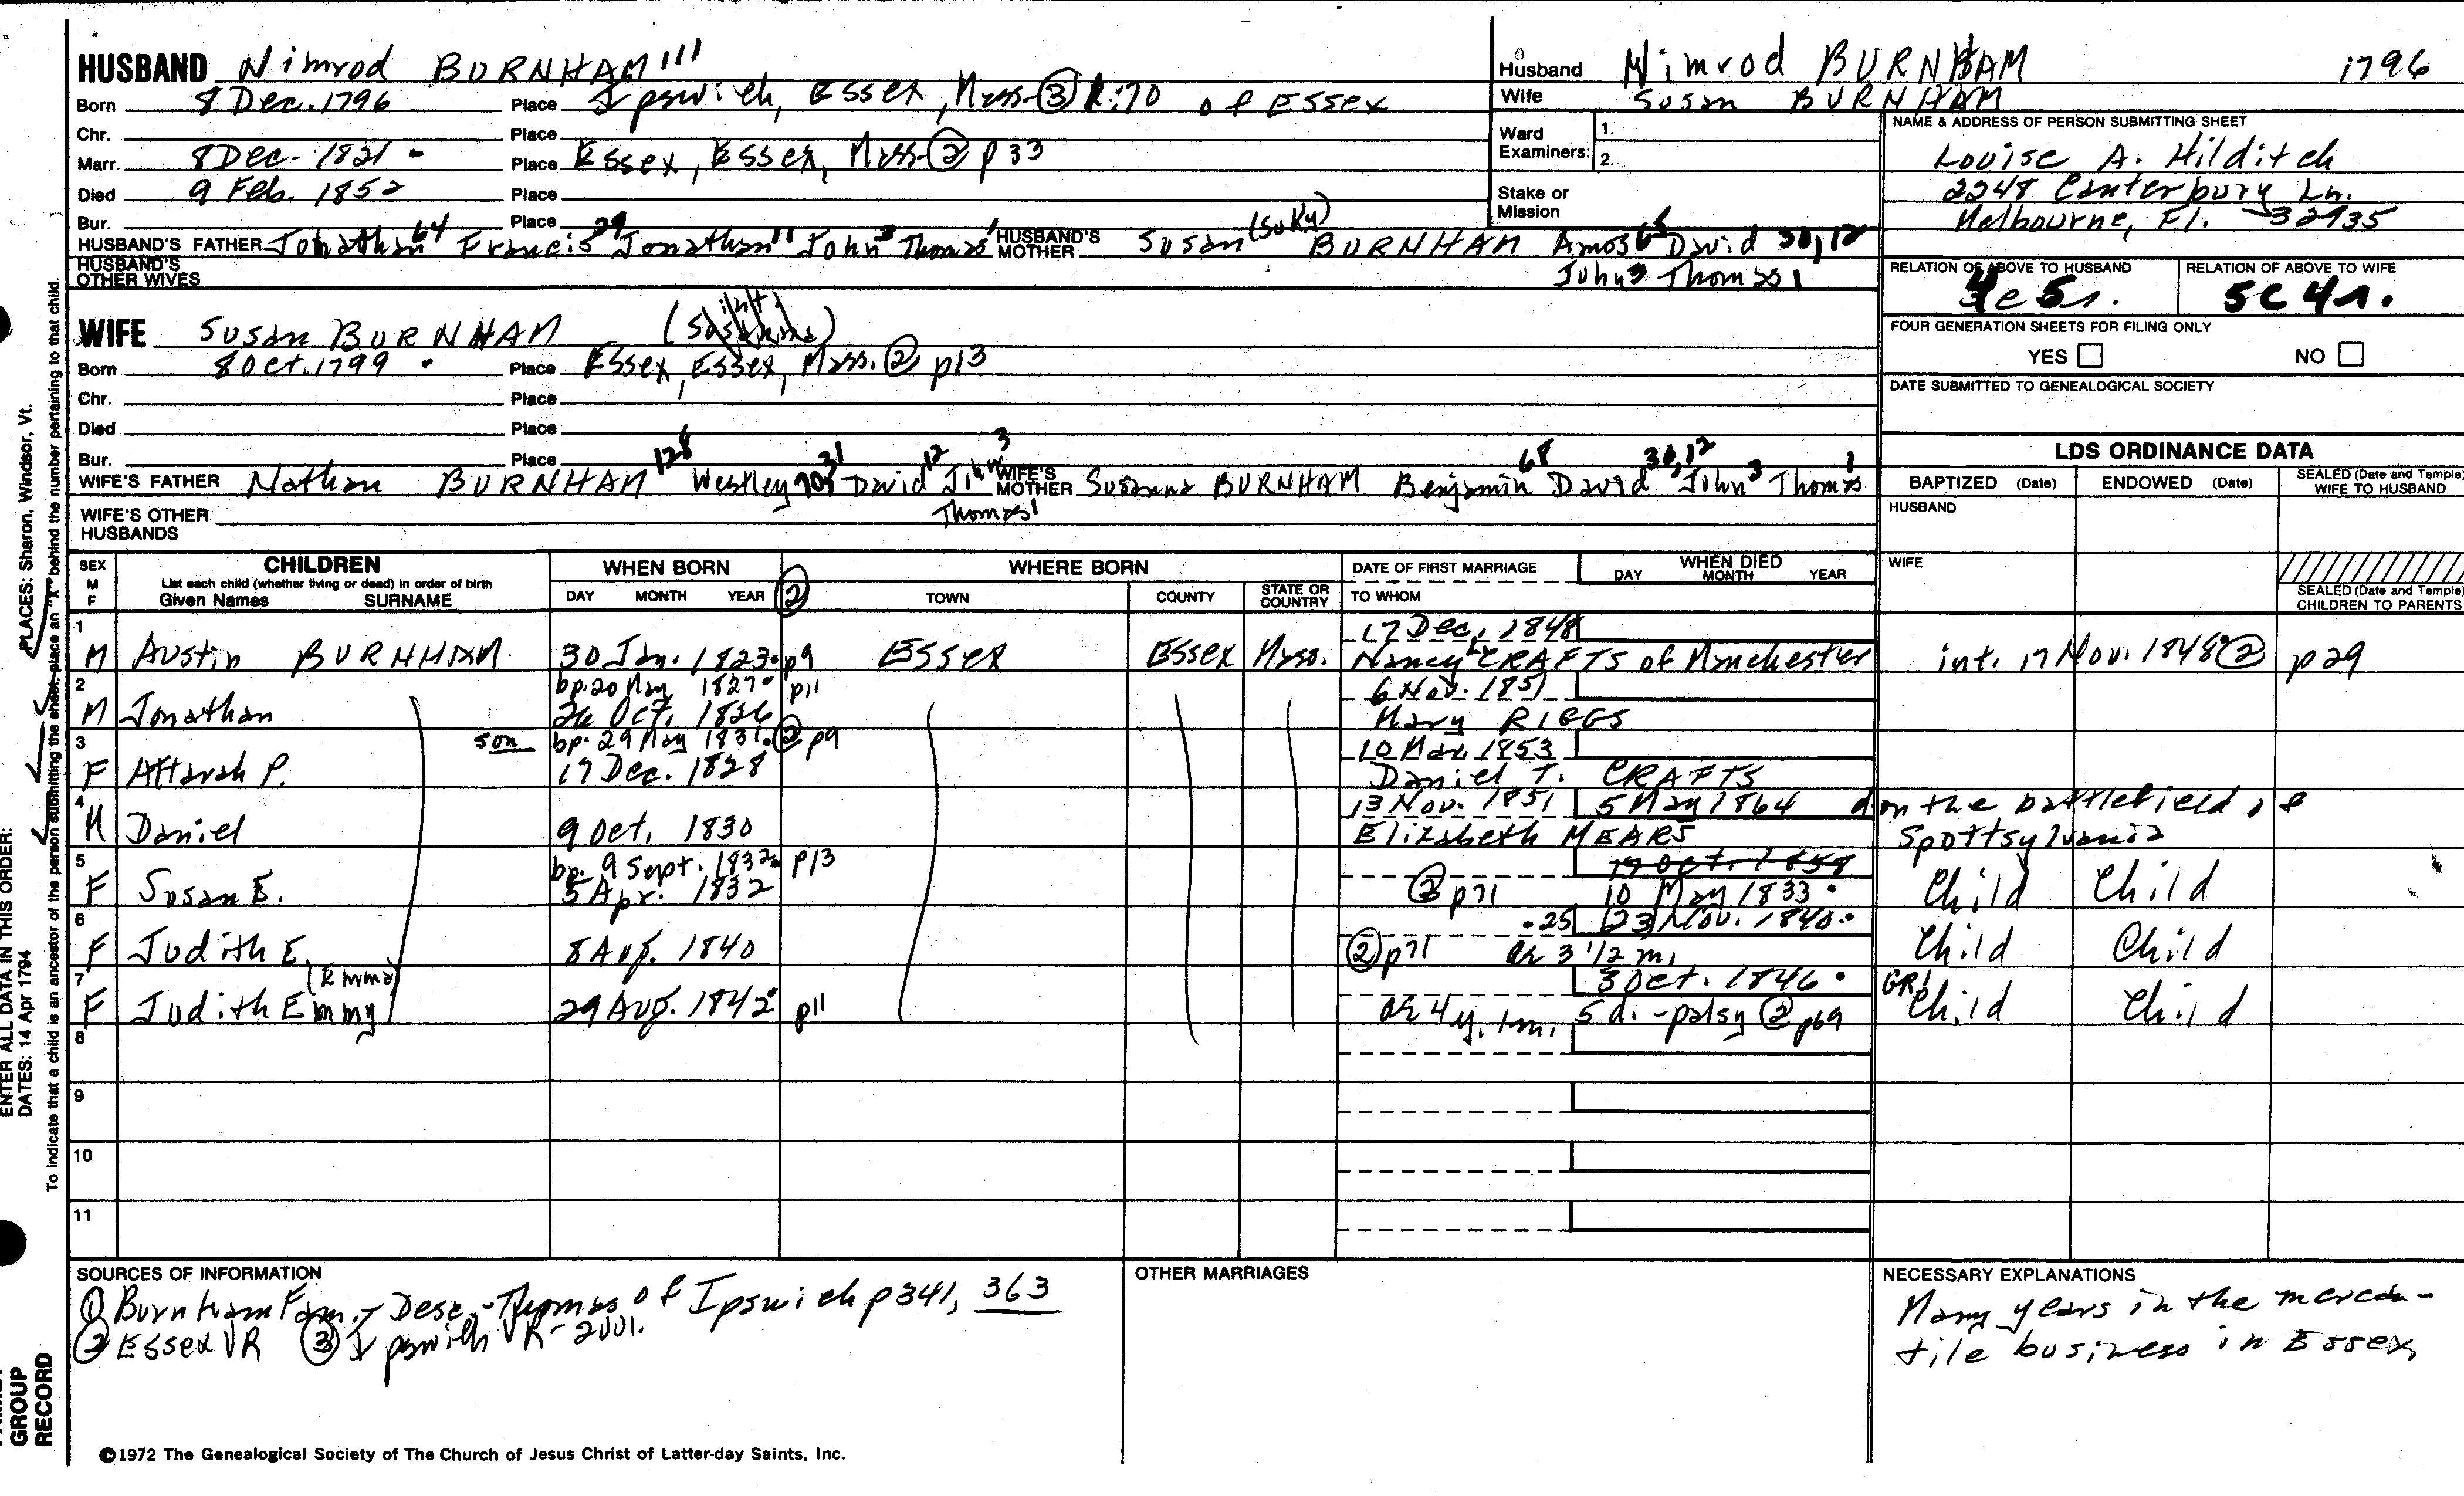 HUSBAND Nimrod BURNHAM 111
Born 8 Dec. 1796 Place Ipswich, Essex, Mass. (3) R:70 of Essex
Chr. Place
Marr. 8 Dec. 1821 Place Essex, Essex, Mass. (2) p33
Died 9 Feb. 1852 Place
Bur. Place
HUSBAND'S FATHER Jonathan 64 Francis 29 Jonathan 11 John 3 Thomas 1 HUSBAND'S MOTHER Susan (Suky) BURNHAM Amos 65 David 30,12
John 3 Thomas 1
HUSBAND'S OTHER WIVES
Husband Nimrod BURNHAM 1796
Wife Susan BURNHAM
Ward Examiners: 1.
2.
Stake or Mission
NAME & ADDRESS OF PERSON SUBMITTING SHEET
Louise A. Hilditch
2248 Canterbury Ln.
Melbourne, Fl. 32935
RELATION OF ABOVE TO HUSBAND RELATION OF ABOVE TO WIFE
5c4r.
FOUR GENERATION SHEETS FOR FILING ONLY
YES NO
DATE SUBMITTED TO GENEALOGICAL SOCIETY
WIFE Susan BURNHAM
Born 8 Oct. 1799 Place Essex, Essex, Mass. (2) p13
Chr. Place
Died Place
Bur. Place
WIFE'S FATHER Nathan BURNHAM 128 Westley David 12 John 3 WIFE'S MOTHER Susanna BURNHAM Benjamin 68 David 30,12 John 3 Thomas 1
Thomas 1
WIFE'S OTHER HUSBANDS
LDS ORDINANCE DATA
BAPTIZED (Date) ENDOWED (Date) SEALED (Date and Temple) WIFE TO HUSBAND
HUSBAND
WIFE
SEALED (Date and Temple) CHILDREN TO PARENTS
SEX M F CHILDREN WHEN BORN WHERE BORN DATE OF FIRST MARRIAGE WHEN DIED
List each child (whether living or dead) in order of birth
Given Names SURNAME DAY MONTH YEAR (2) TOWN COUNTY STATE OR COUNTRY TO WHOM DAY MONTH YEAR
1 17 Dec. 1848
M Austin BURNHAM 30 Jan. 1823 p9 Essex Essex Mass. Nancy L. CRAFTS of Manchester int. 17 Nov. 1848 (2) p29
2 bp. 20 May 1827 p11 6 Nov. 1851
M Jonathan 26 Oct. 1826 Mary RIGGS
3 son bp. 29 May 1831 (2) p9 10 Mar. 1853
F Attarah P. 17 Dec. 1828 Daniel T. CRAFTS
4 13 Nov. 1851 5 May 1864 d on the battlefield of
M Daniel 9 Oct. 1830 Elizabeth MEARS Spottsylvania
5 bp. 9 Sept. 1832 p13 19 Oct. 1858
F Susan E. 5 Apr. 1832 (2) p71 10 May 1833 Child Child
6 25 [23] Nov. 1840
F Judith E. 8 Aug. 1840 (2) p71 ae 3 1/2 m. Child Child
7 (Emma) 3 Oct. 1846 GR1
F Judith Emmy 29 Aug. 1842 p11 ae 4 y. 1 m. 5 d. - palsy (2) p69 Child Child
8
9
10
11
SOURCES OF INFORMATION
(1) Burnham Fam. - Desc. - Thomas of Ipswich p341, 363
(2) Essex VR (3) Ipswich VR
OTHER MARRIAGES
NECESSARY EXPLANATIONS
Many years in the mercan-
tile business in Essex
©1972 The Genealogical Society of The Church of Jesus Christ of Latter-day Saints, Inc.
PLACES: Sharon, Windsor, Vt.
ENTER ALL DATA IN THIS ORDER:
DATES: 14 Apr 1794
To indicate that a child is an ancestor of the person submitting the sheet, place an "X" behind the number pertaining to that child.
GROUP
RECORD